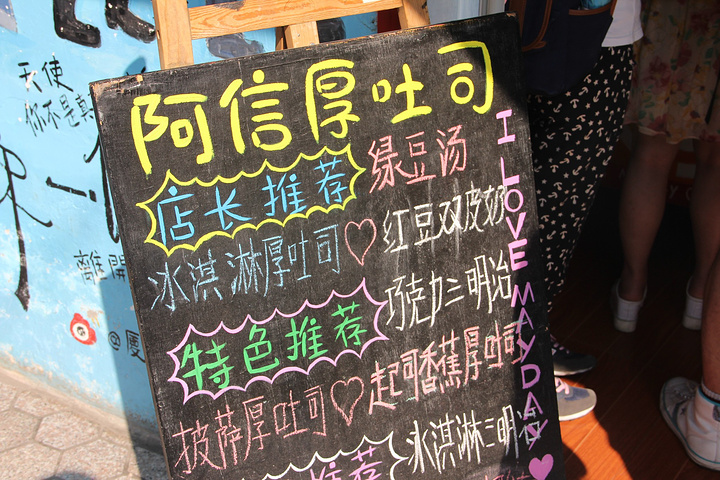 阿信厚吐司
店长推荐
绿豆汤
冰淇淋厚吐司
红豆双皮奶
特色推荐
巧克力三明治
披萨厚吐司
起司香蕉厚吐司
推荐
冰淇淋三明治
I LOVE MAYDAY
天使
你不是真
離開
@廈